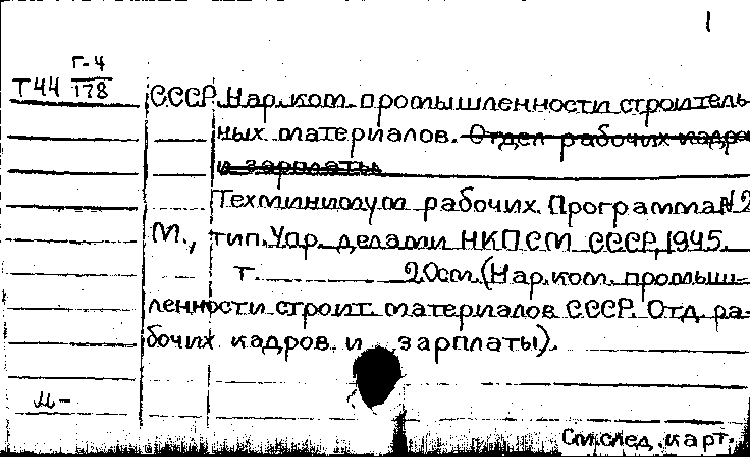 1
Т44 Г-4/178
СССР. Нар. ком. промышленности строитель-
ных материалов. Отдел рабочих кадров
и зарплаты
Техминимум рабочих. Программа N2
М., тип. Упр. делами НКПСМ СССР, 1945.
т. 20см. (Нар. ком. промыш-
ленности строит. материалов СССР. Отд. ра-
бочих кадров и зарплаты).
См. след. карт.